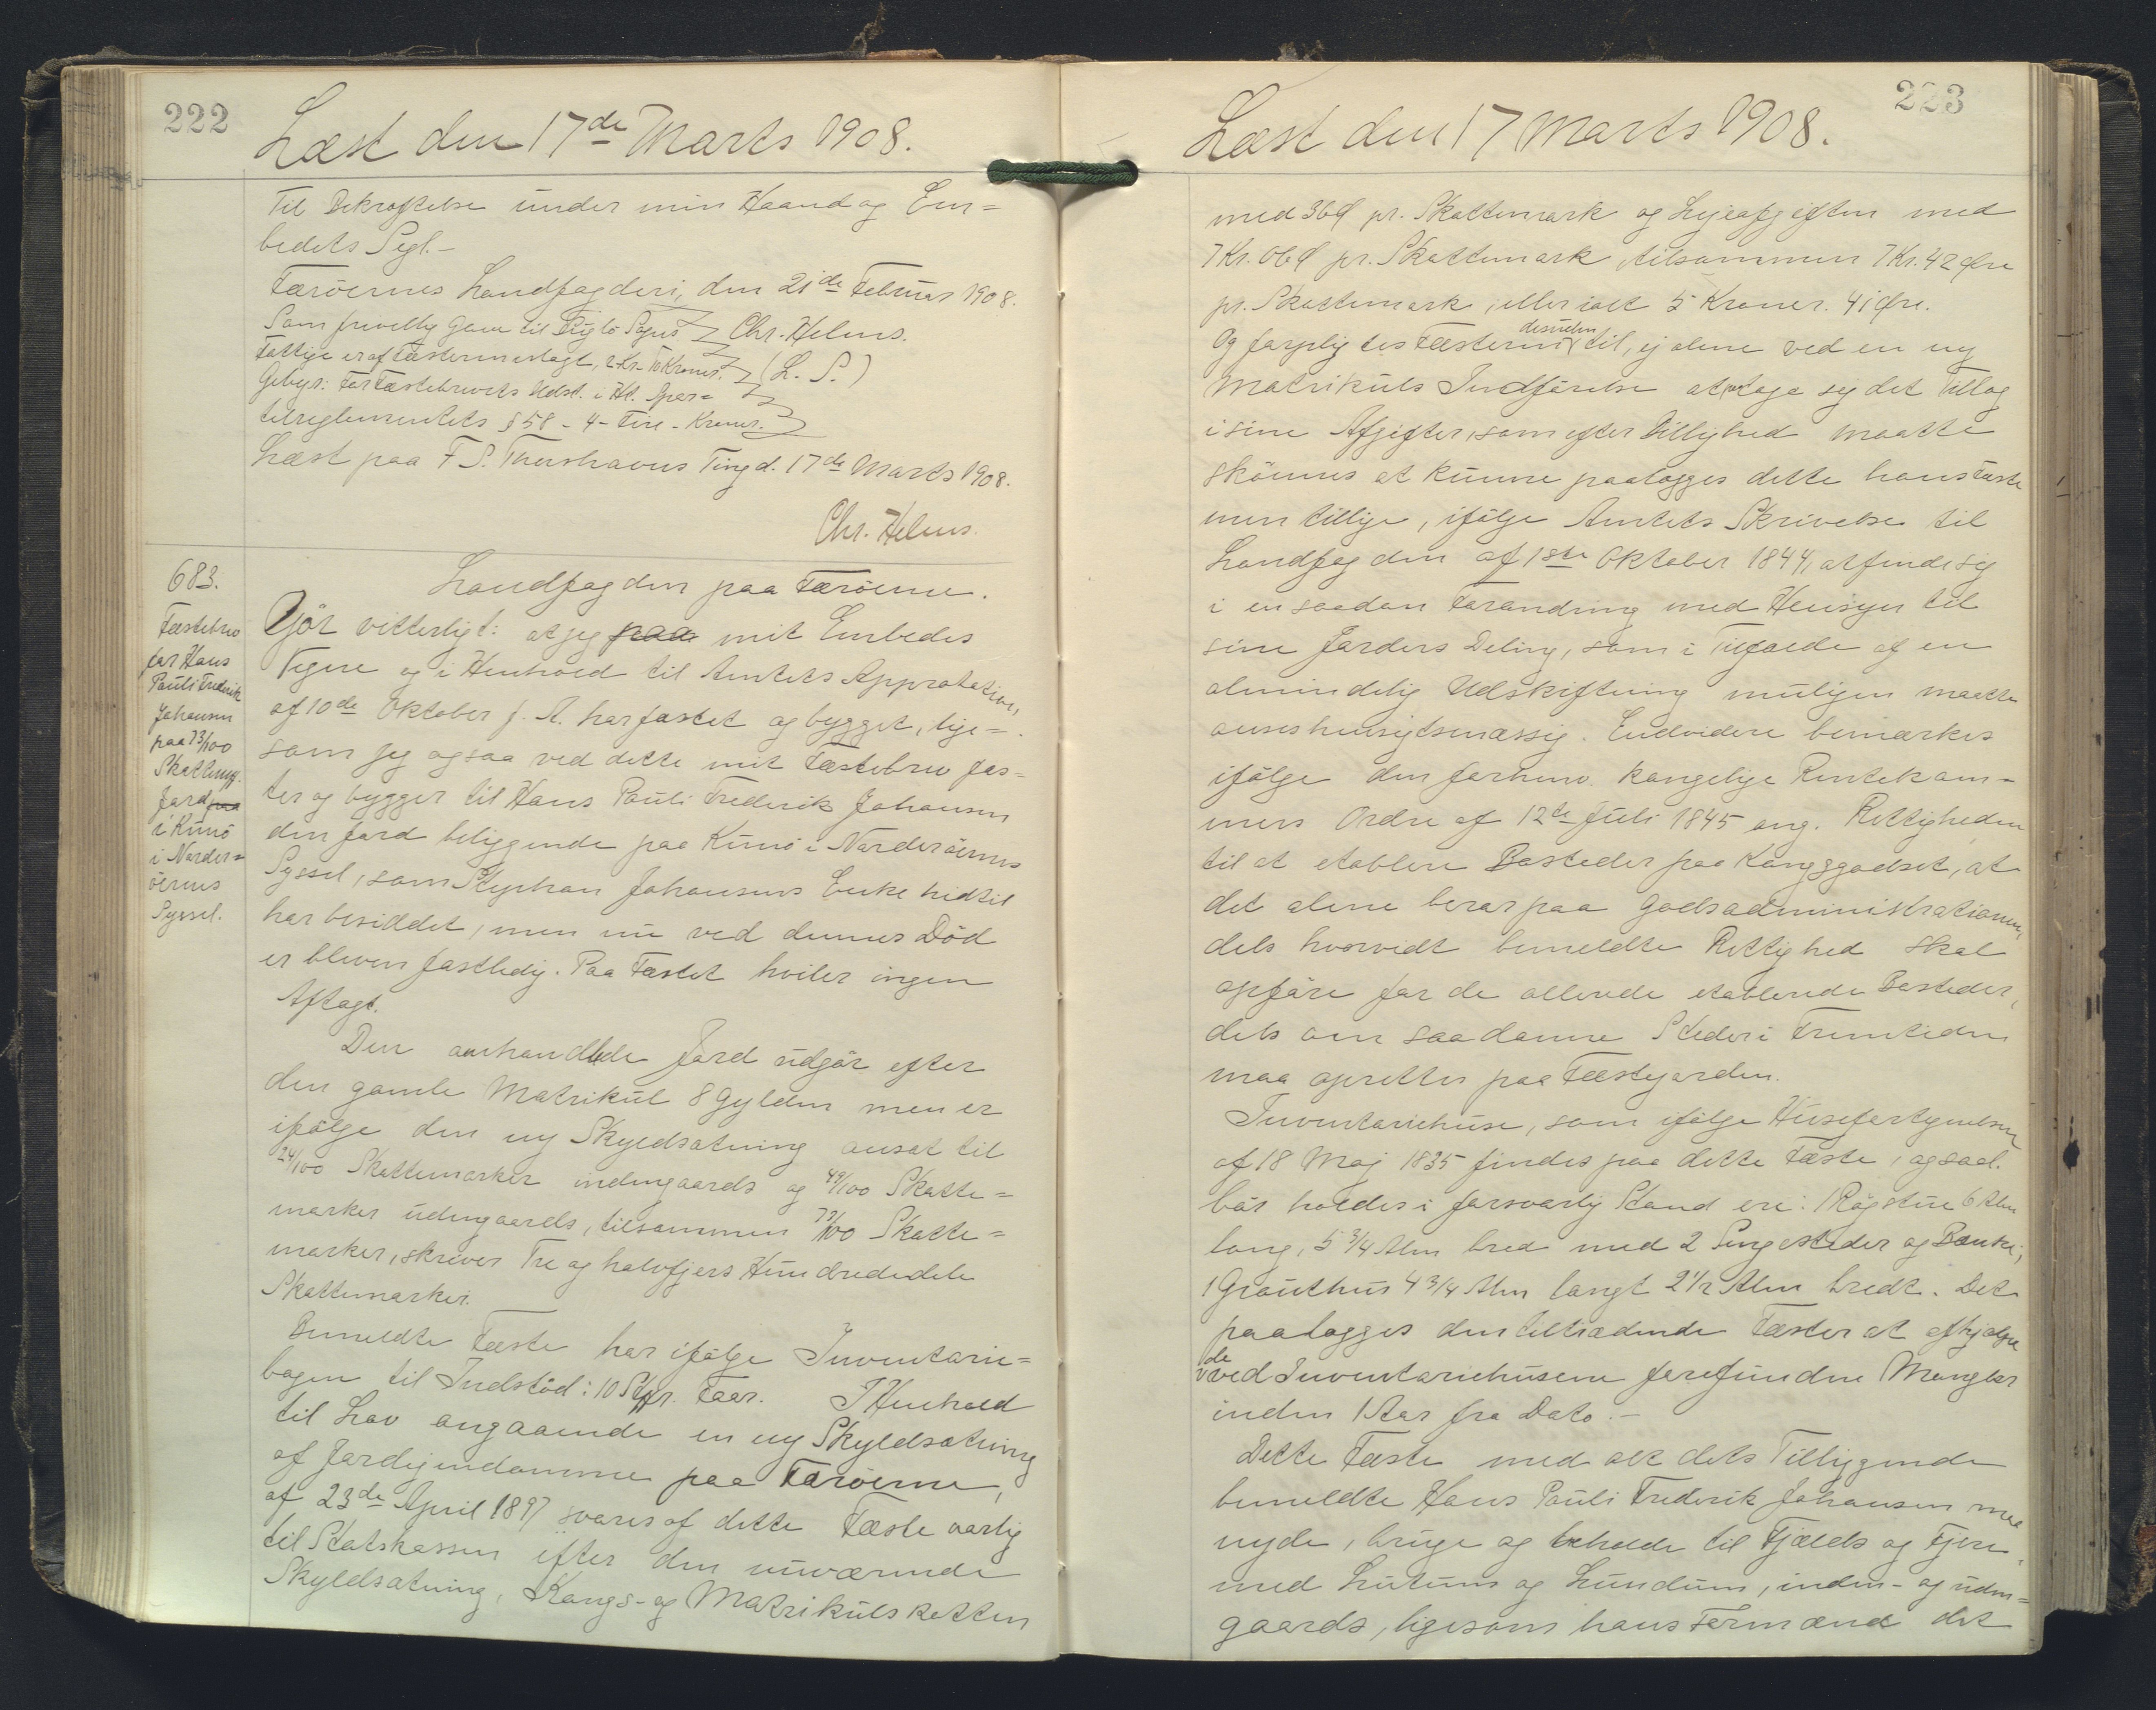 222
Læst den 17de Marts 1908.
Til Bekræftelse under min Haand og Em=
bedets Segl.-
Færöernes Landfogderi, den 21de Februar 1908.
Som frivillig Gave til Sogns Chr. Helms.
Fattige er af Fæsteren erlagt, 2 Kr. To Kroner. (L. S.)
Gebyr: For Fæstebrevets Udst. i Ht. Spor=
telreglementets § 58 - 4 - Fire - Kroner.
Læst paa F. S. Thorshavns Ting d. 17de Marts 1908.
Chr. Helms.
683.
Fæstebrev
for Hans
Pauli Frederik
Johansen
paa 73/100
Skattemk.
Jord paa
i Kunö
i Norder=
öernes
Syssel.
Landfogden paa Færöerne.
Gör vitterligt: at jeg paa mit Embedes
Vegne og i Henhold til Amtets Approbation,
af 10de Oktober f. A. har fæstet og bygget, lige=
som jeg ogsaa ved dette mit Fæstebrev fæs=
ter og bygger til Hans Pauli Frederik Johansen
den Jord beliggende paa Kunö i Norderöernes
Syssel, som Stephan Johansens Enke hidtil
har besiddet, men nu ved dennes Död
er bleven fæstledig. Paa Fæstet hviler ingen
Aftagt.
Den omhandlede Jord udgör efter
den gamle Matrikul 8 Gylden men er
ifölge den ny Skyldsætning ansat til
24/100 Skattemarker indengaards og 49/100 Skatte=
marker udengaards, tilsammen 73/100 Skatte=
marker, skriver Tre og halvfjers Hundrededele
Skattemarker.
Bemeldte Fæste har ifölge Inventarie=
bogen til Indstöd: 10 Stkr. Faar. I Henhold
til Lov angaaende en ny Skyldsætning
af Jordejendomme paa Færöerne,
af 23de April 1897 svares af dette Fæste aarlig
til Statskassen efter den nuværende
Skyldsætning, Kongs- og Matrikulskatten
223
Læst den 17 Marts 1908.
med 36 Ø pr. Skattemark og Lejeafgiften med
7 Kr. 06 Ø pr. Skattemark, tilsammen 7 Kr. 42 Øre
pr. Skattemark, eller ialt 5 Kroner. 41 Øre.
desuden
Og forpligtes Fæsteren til, ej alene ved en ny
Matrikuls Indförelse at paatage sig det Tillæg
i sine Afgifter, som efter Billighed maatte
skönnes at kunne paalægges dette hans Fæste
men tillige, ifölge Amtets Skrivelse til
Landfogden af 1ste Oktober 1844, at finde sig
i en saadan Forandring med Hensyn til
sine Jorders Deling, som i Tilfælde af en
almindelig Udskiftning muligen maatte
anses hensigtsmæssig. Endvidere bemærkes
ifölge den forhenv. kongelige Rentekam=
mers Ordre af 12te Juli 1845 ang. Rettigheden
til at etablere Bosteder paa Kongsgodset, at
det alene beror paa Godsadministrationen,
dels hvorvidt bemeldte Rettighed skal
ophöre for de allerede etablerede Bosteder,
dels om saadanne Steder i Fremtiden
maa oprettes paa Fæstejorden.
Inventariehuse, som ifölge Husefortegnelsen
af 18 Maj 1835 findes paa dette Fæste, og saal.
bör holdes i forsvarlig Stand ere: 1 Rögstue 6 Alen
lang, 5 3/4 Alen bred med 2 Sengesteder og Bænke;
1 Grönthus 4 3/4 Alen langt 2 1/2 Alen bredt. Det
paalægges den tiltrædende Fæster at afhjælpe
de
ved Inventariehusene forefundne Mangler
inden 1 Aar fra Dato.-
Dette Fæste med alt dets Tilliggende
bemeldte Hans Pauli Frederik Johansen maa
nyde, bruge og beholde til Fjælds og Fjære,
med Lutum og Lundum, inden- og uden=
gaards, ligesom hans Formænd det